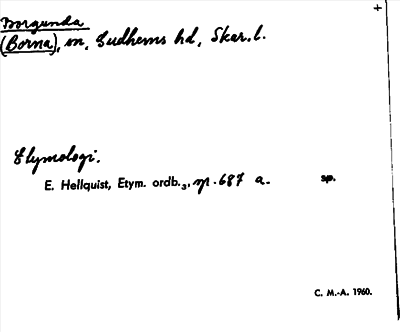 Borgunda
(Borna), sn, Gudhems hd, Skar. l.
Etymologi.
E. Hellquist, Etym. ordb.3, sp. 687 a. sp.
C. M.-A. 1960.